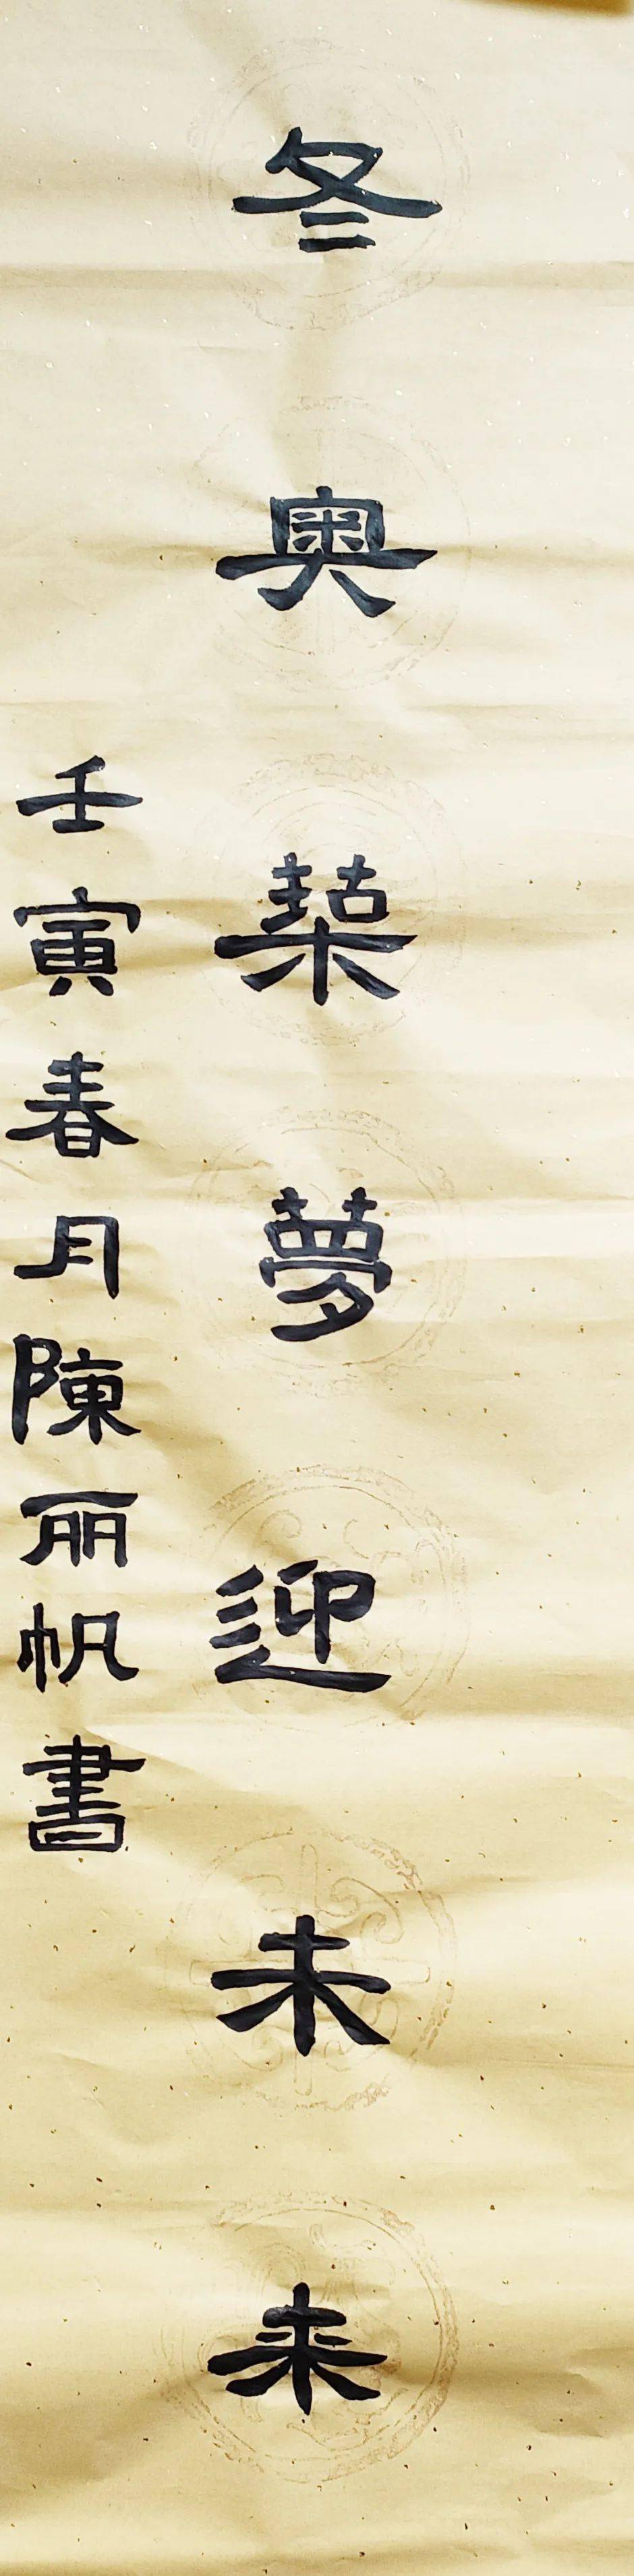 冬奥築夢迎未来
壬寅春月陳丽帆書